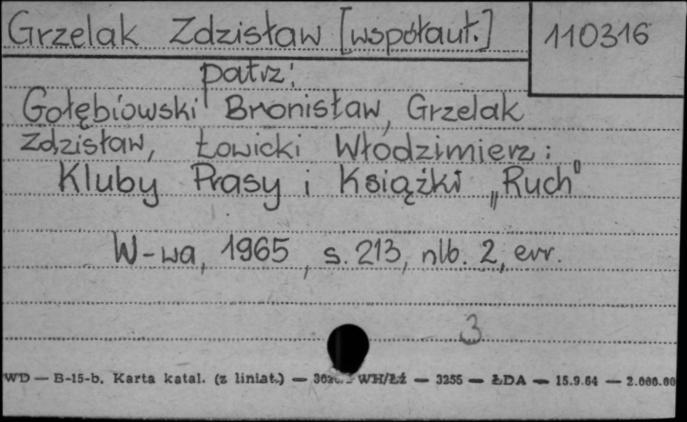 Grzelak Zdzisław [współaut.]
110316
patrz:
Gołębiowski Bronisław, Grzelak
Zdzisław, Łowicki Włodzimierz:
Kluby Prasy i Książki „Ruch"
W-wa, 1965, s. 213, nlb. 2, err.
3
WD — B-15-b. Karta katal. (z liniat.) — WH/Łź — 3255 — ŁDA — 15.9.64 — 2.000.00